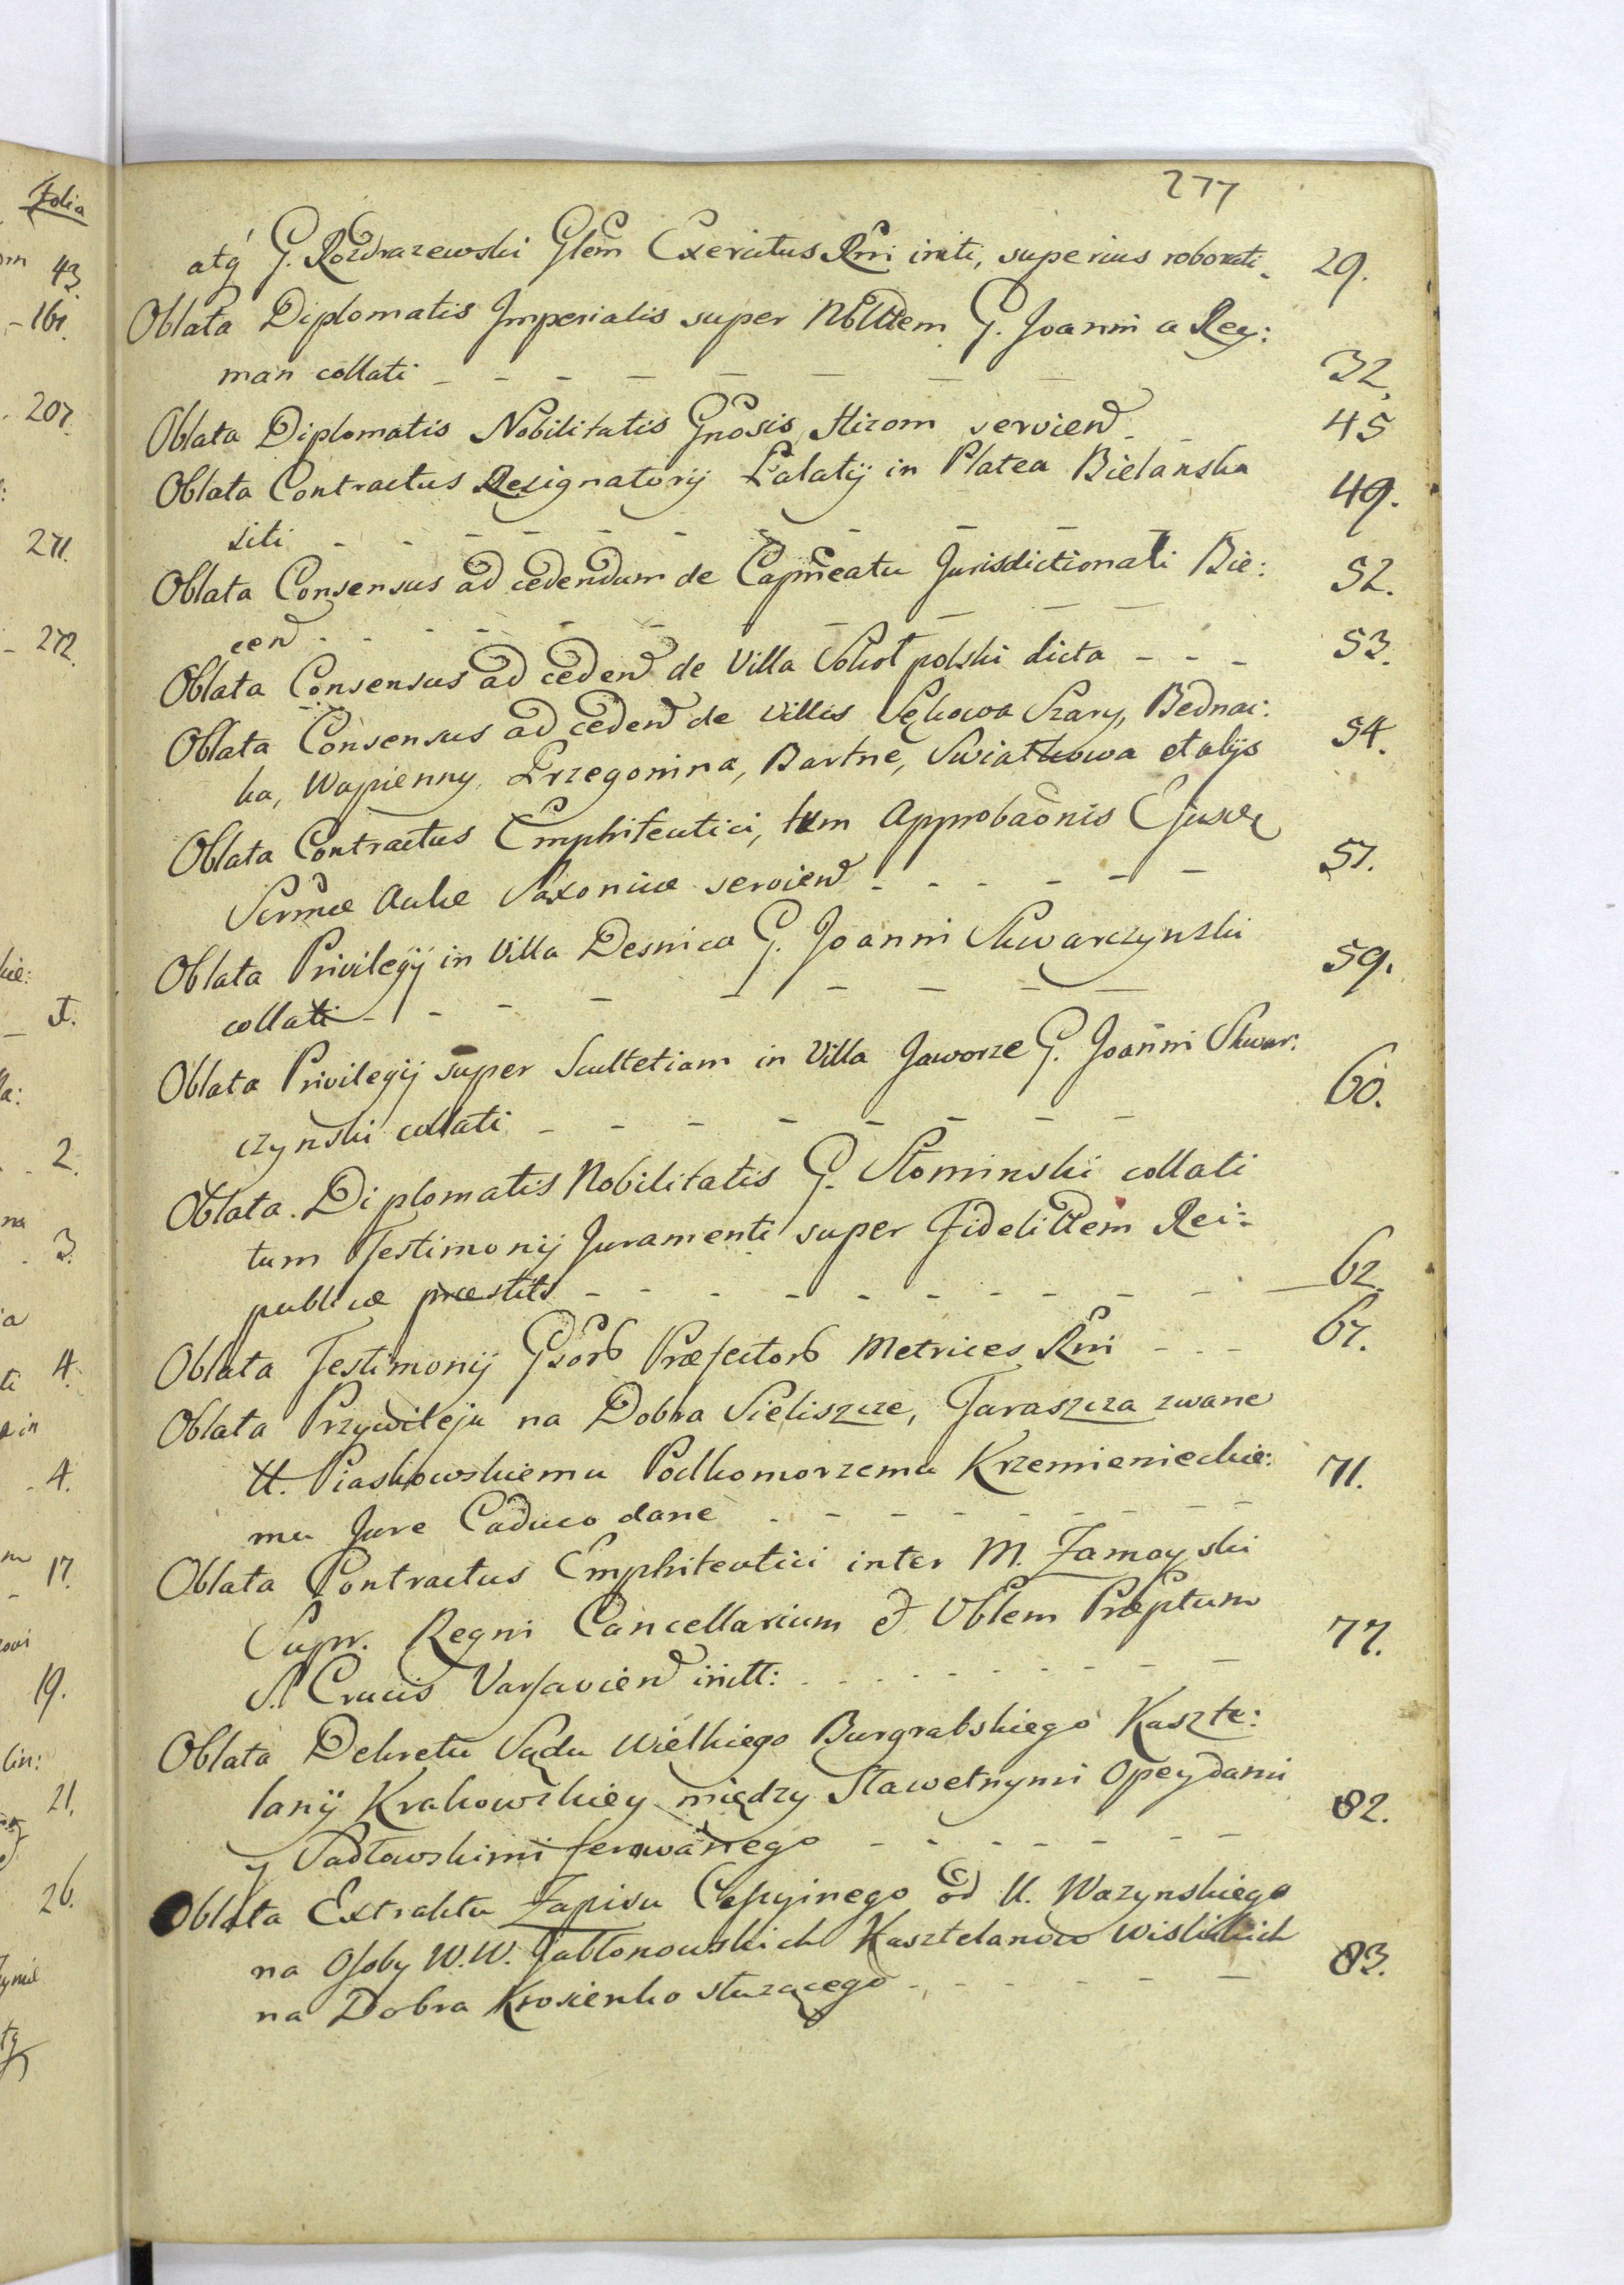 Folia
43.
161.
207.
271.
272.
2.
3.
4.
4.
17.
19.
21.
26.
277
atq́ G. Rozdrazewski Glem Exercitus Rni initi, superius roborati 29.
Oblata Diplomatis Imperialis super Nobilittem G. Joanni a Rey:
man collati - - - - - - - 32.
Oblata Diplomatis Nobilitatis Gnosis Hizom serviend - - 45
Oblata Contractus Resignatorij Palatij in Platea Bielanska
siti - - - - - - - - 49.
Oblata Consensus ad cedendum de Capneatu Jurisdictionali Bie:
cen - - - - - - - - 52.
Oblata Consensus ad cedend de Villa Sokoł polski dicta - - - 53.
Oblata Consensus ad cedend de Villis Sękowa Szary, Bednar:
ka, Wapienny, Przegonina, Bartne, Swiatkowa et alijs 54.
Oblata Contractus Emphiteutici, tum Approbaōnis Ejusde
Sermæ Aulæ Saxonicæ serviend - - - - - - 57.
Oblata Privilegij in Villa Desnica G. Joanni Skwarczynski
collati - - - - - - - - 59.
Oblata Privilegij super Scultetiam in Villa Jaworze G. Joanni Skwar:
czynski collati - - - - - - - 60.
Oblata Diplomatis Nobilitatis G. Słominski collati
tum Testimonij Juramenti super Fidelittem Rei:
publicæ præstiti - - - - - - - - - 62.
Oblata Testimonij Gsorb Præfectorb Metrices Rni - - - 67.
Oblata Przywileju na Dobra Sieliszcze, Taraszcza zwane
U. Piaskowskiemu Podkomorzemu Krzemienieckie:
mu Jure Caduco dane - - - - - - - 71.
Oblata Contractus Emphiteutici inter M. Zamoyski
Supr. Regni Cancellarium et Vblem Præptum
S. Crucis Varsaviend initt: - - - - - - - 77.
Oblata Dekretu Sądu Wielkiego Burgrabskiego Kaszte:
lanij Krakowskiey między Sławetnymi Opeydami
y Padłowskimi ferowanego - - - - - - - 82.
Oblata Extraktu Zapisu Cessyinego od U. Wazynskiego
na Osoby W.W. Jabłonowskich Kasztelanow Wislickich
na Dobra Krosienko służącego - - - - - - 83.